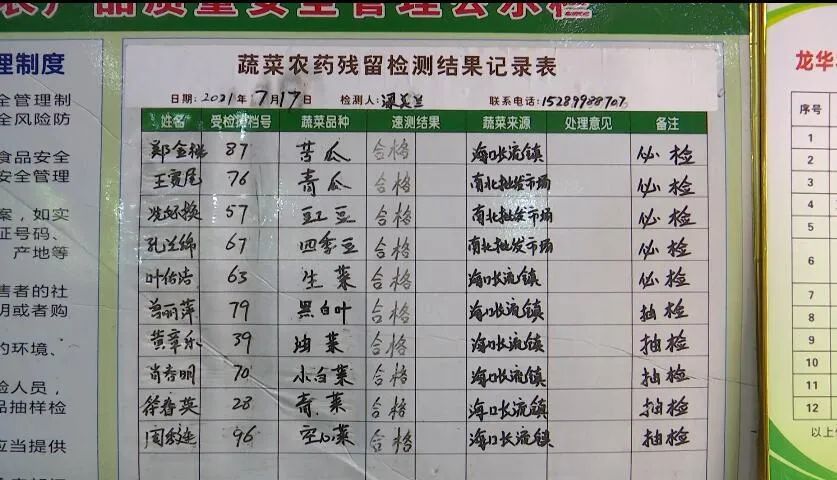 农产品质量安全管理公示栏
理制度
全管理制
全风险防
食品安全
安全管理
案，如实
证号码、
产地等
害者的社
明或者购
的环境、
检人员，
品抽样检
应当提供
蔬菜农药残留检测结果记录表
日期：2021年7月17日 检测人： 联系电话：15289988707
姓名 受检测档号 蔬菜品种 速测结果 蔬菜来源 处理意见 备注
87 苦瓜 合格 海口长流镇 必检
76 青瓜 合格 南北批发市场 必检
57 豇豆 合格 南北批发市场 必检
67 四季豆 合格 南北批发市场 必检
63 生菜 合格 海口长流镇 必检
79 黑白叶 合格 海口长流镇 抽检
39 油菜 合格 海口长流镇 抽检
肖春明 70 小白菜 合格 海口长流镇 抽检
徐春英 28 青菜 合格 海口长流镇 抽检
96 空心菜 合格 海口长流镇 抽检
龙华
序号
1
2
3
4
5
6
7
8
9
10
11
12
以上